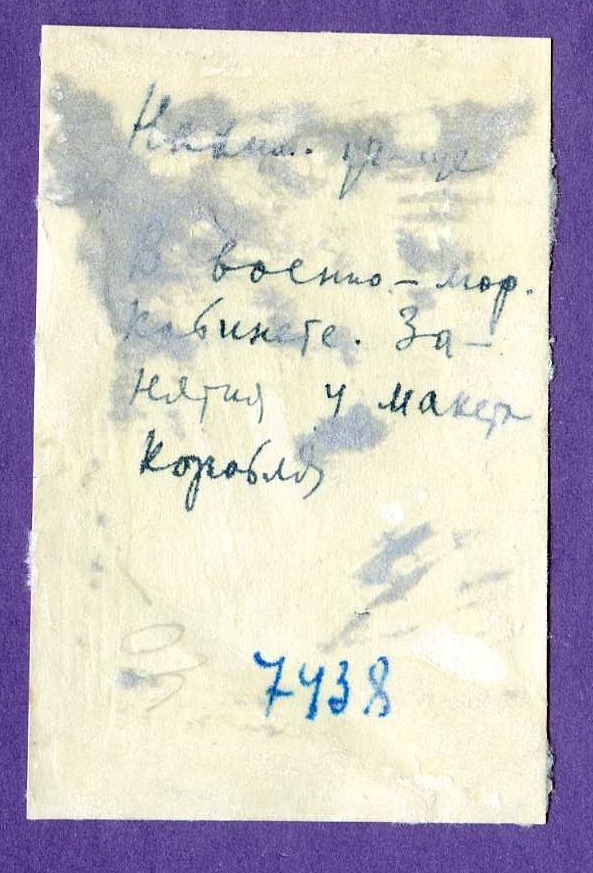 В военно-мор.
кабинете. За-
нятия у макета
корабля
7438